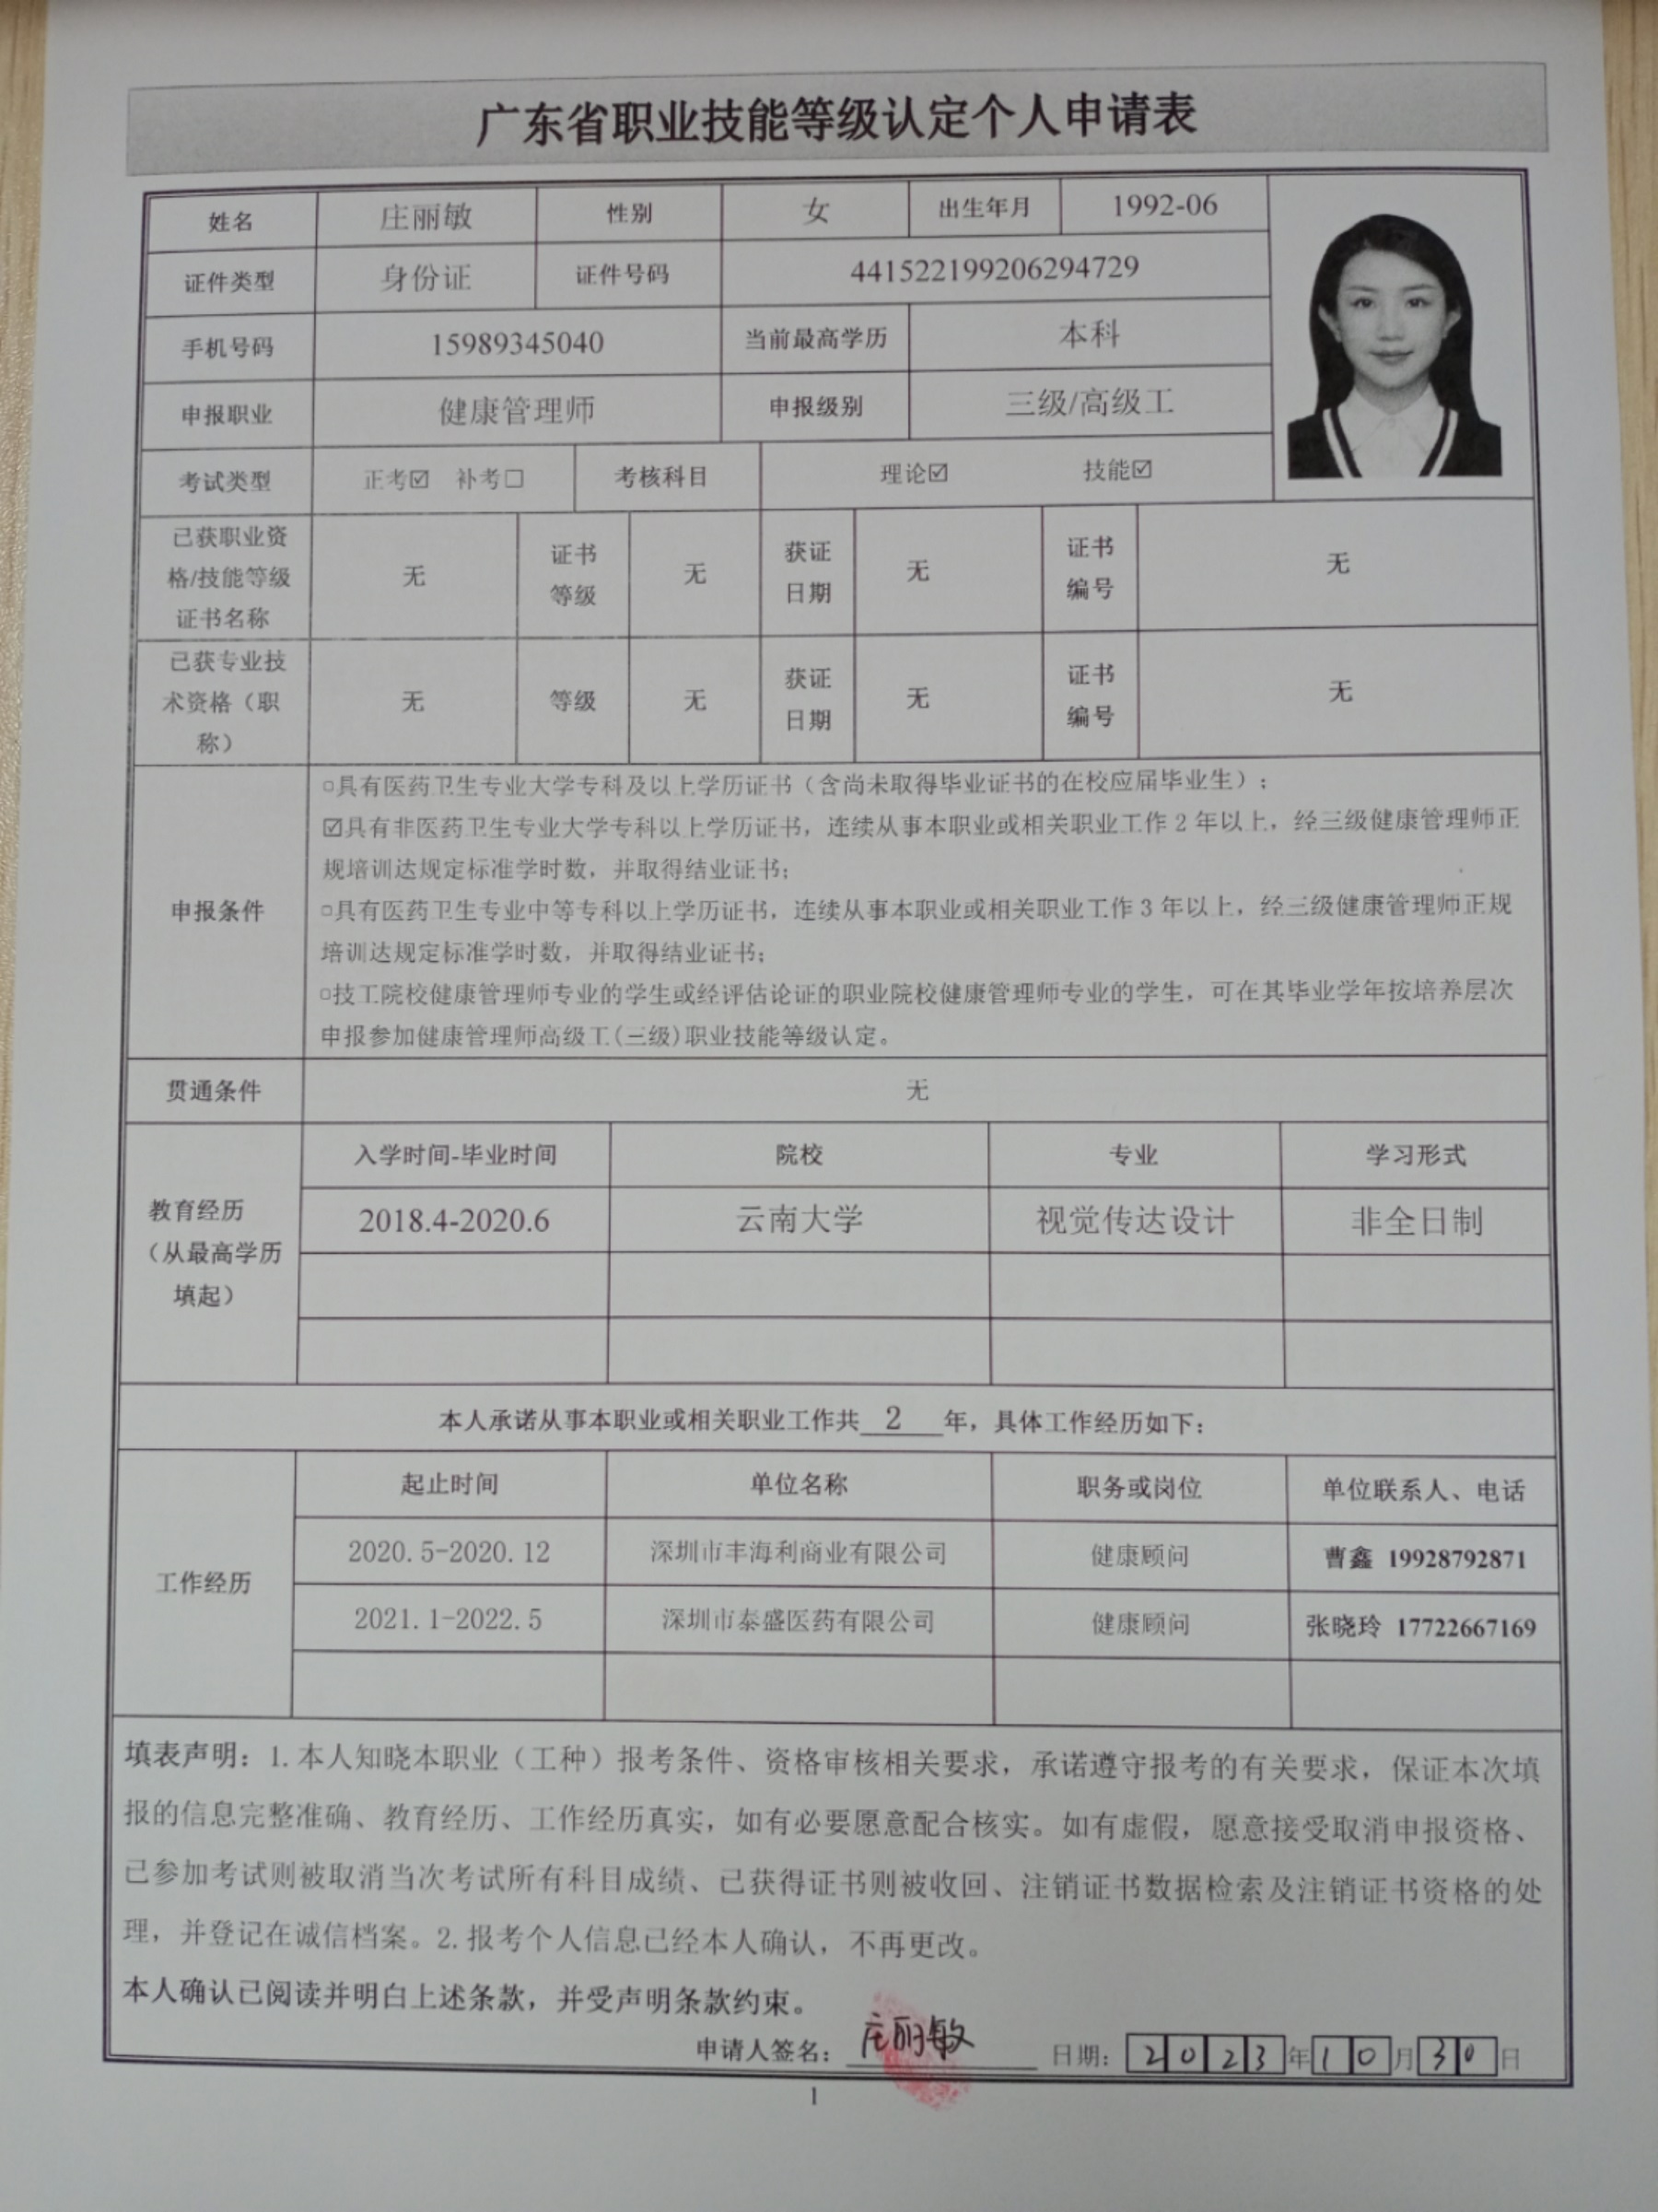 广东省职业技能等级认定个人申请表
姓名 庄丽敏 性别 女 出生年月 1992-06
证件类型 身份证 证件号码 441522199206294729
手机号码 15989345040 当前最高学历 本科
申报职业 健康管理师 申报级别 三级/高级工
考试类型 正考☑ 补考☐ 考核科目 理论☑ 技能☑
已获职业资
格/技能等级
证书名称
无
证书
等级
无
获证
日期
无
证书
编号
无
已获专业技
术资格（职
称）
无
等级
无
获证
日期
无
证书
编号
无
申报条件
□具有医药卫生专业大学专科及以上学历证书（含尚未取得毕业证书的在校应届毕业生）；
☑具有非医药卫生专业大学专科以上学历证书，连续从事本职业或相关职业工作 2 年以上，经三级健康管理师正
规培训达规定标准学时数，并取得结业证书；
□具有医药卫生专业中等专科以上学历证书，连续从事本职业或相关职业工作 3 年以上，经三级健康管理师正规
培训达规定标准学时数，并取得结业证书；
□技工院校健康管理师专业的学生或经评估论证的职业院校健康管理师专业的学生，可在其毕业学年按培养层次
申报参加健康管理师高级工(三级)职业技能等级认定。
贯通条件 无
教育经历
（从最高学历
填起）
入学时间-毕业时间 院校 专业 学习形式
2018.4-2020.6 云南大学 视觉传达设计 非全日制
本人承诺从事本职业或相关职业工作共 2 年，具体工作经历如下：
工作经历
起止时间 单位名称 职务或岗位 单位联系人、电话
2020.5-2020.12 深圳市丰海利商业有限公司 健康顾问 曹鑫 19928792871
2021.1-2022.5 深圳市泰盛医药有限公司 健康顾问 张晓玲 17722667169
填表声明：1.本人知晓本职业（工种）报考条件、资格审核相关要求，承诺遵守报考的有关要求，保证本次填
报的信息完整准确、教育经历、工作经历真实，如有必要愿意配合核实。如有虚假，愿意接受取消申报资格、
已参加考试则被取消当次考试所有科目成绩、已获得证书则被收回、注销证书数据检索及注销证书资格的处
理，并登记在诚信档案。2.报考个人信息已经本人确认，不再更改。
本人确认已阅读并明白上述条款，并受声明条款约束。
申请人签名：庄丽敏 日期：2023年10月30日
1